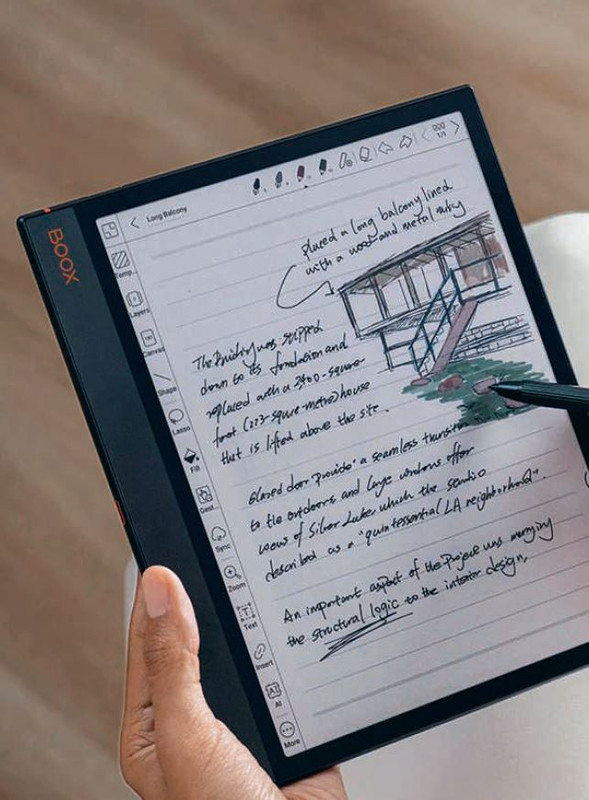 BOOX
Long Balcony
1/1
Temp...
Layers
Canvas
Shape
Lasso
Fill
Gest...
Sync
Zoom
Text
Insert
AI
More
placed a long balcony lined
with a wood and metal
The Building was stripped
down to its foundation and
replaced with a 2400-square-
foot (223-square-metre) house
that is lifted above the site.
Glazed door "provide" a seamless
to the outdoors and large windows offer
views of Silver Lake which the studio
described as a "quintessential LA neighborhood".
An important aspect of the Project was marrying
the structural logic to the interior design.